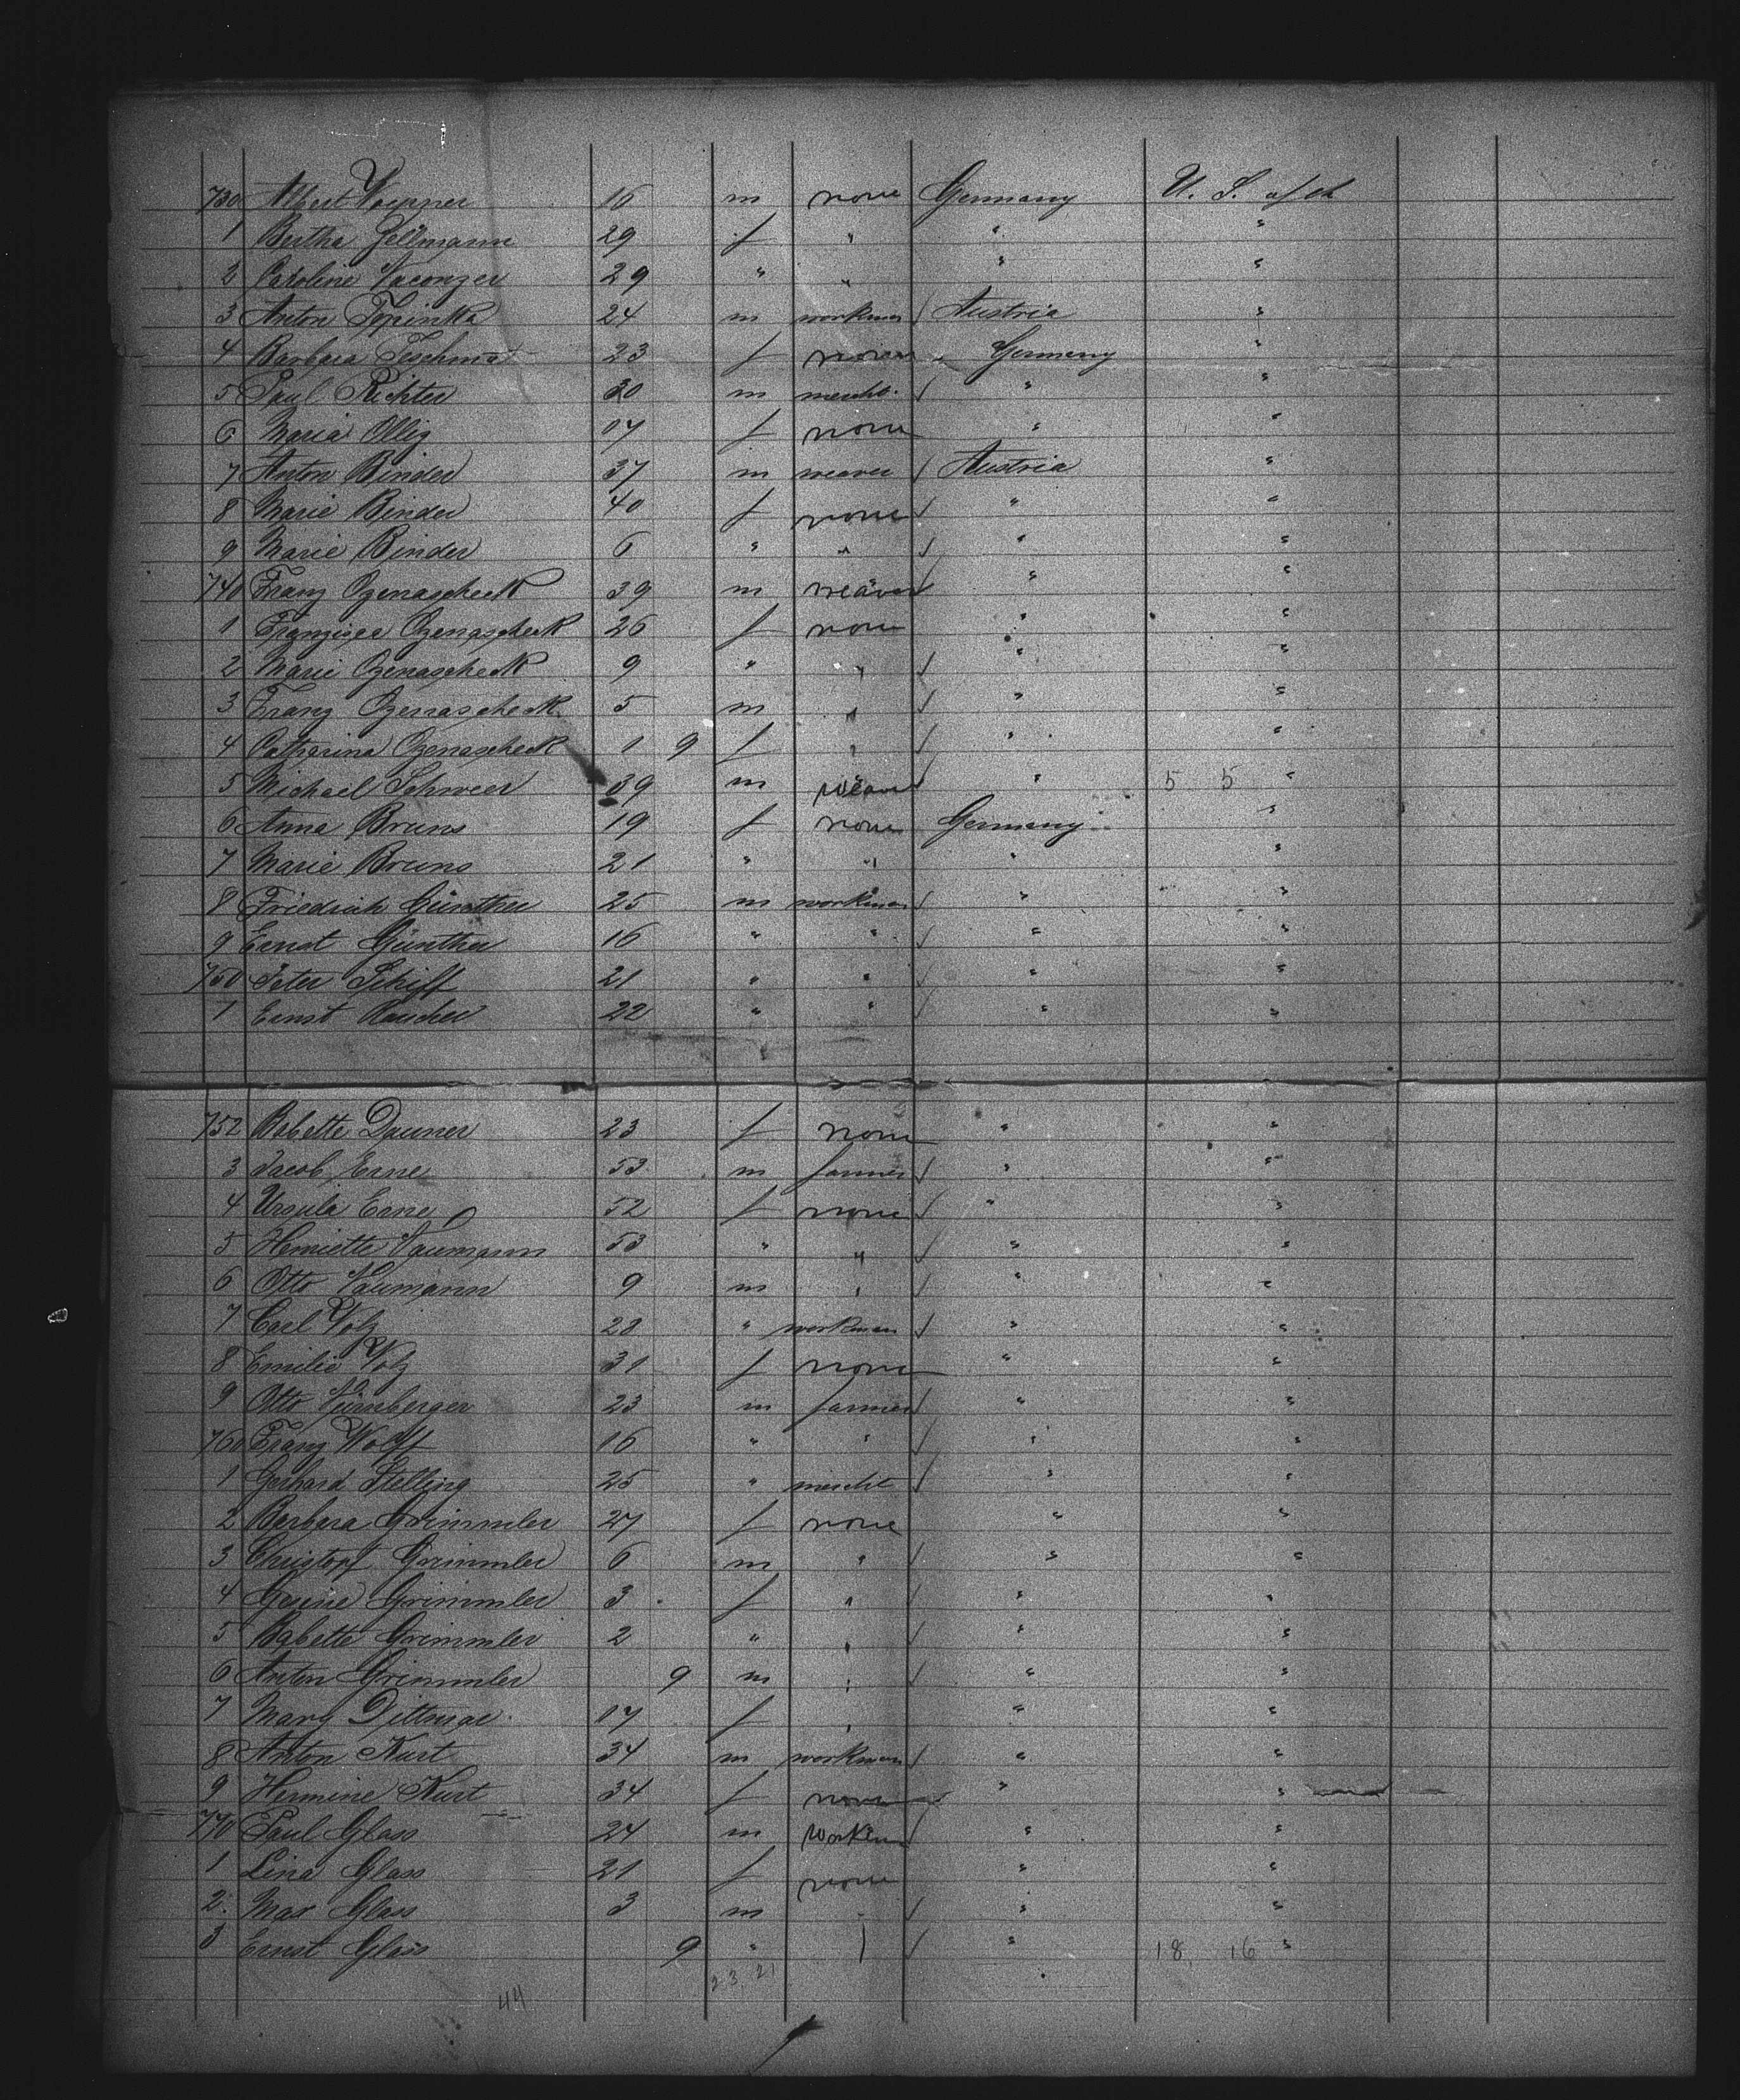 730 Albert Voepner 16 m none Germany U. S. of A
1 Bertha Hellmann 29 f " " "
2 Caroline 29 " " " "
3 Anton Topinka 24 m workman / Austria "
4 Barbara 23 f none " Germany "
5 Paul Richter 30 m mercht. / " "
6 Maria Ollig 07 f none " "
7 Anton Binder 37 m weaver / Austria "
8 Marie Binder 40 f none / " "
9 Marie Binder 6 " " / " "
740 Franz Ozenascheck 39 m weaver / " "
1 Franzisca Ozenascheck 26 f none " "
2 Marie Ozenascheck 9 " " / " "
3 Franz Ozenascheck 5 m " / " "
4 Catharina Ozenascheck 1 9 f " / " "
5 Michael Schweer 39 m weaver / " 5 5 "
6 Anna Bruns 19 f none Germany "
7 Marie Bruns 21 " " " "
8 Friedrich Günther 25 m workman / " "
9 Ernst Günther 16 " " / " "
750 Peter Schiff 21 " " / " "
1 Ernst Rascher 22 " " / " "
752 Babette Dauner 23 f none " "
3 Jacob Erne 53 m farmer / " "
4 Ursula Erne 52 f none / " "
5 Henriette Naumann 53 " " / " "
6 Otto Naumann 9 m " / " "
7 Carl Volz 28 " workman / " "
8 Emilie Volz 31 f none " "
9 Otto Nürnberger 23 m farmer / " "
760 Franz Wolff 16 " " / " "
1 Gerhard Stelling 25 " mercht / " "
2 Barbara Grimmler 27 f none " "
3 Christopf Grimmler 6 m " / " "
4 Gesine Grimmler 3 f " / " "
5 Babette Grimmler 2 " " / " "
6 Anton Grimmler 9 m " / " "
7 Mary Dittmar 07 f " " "
8 Anton Kurt 34 m workman / " "
9 Hermine Kurt 34 f none " "
770 Paul Glass 24 m workm / " "
1 Lina Glass 21 f none " "
2 Max Glass 3 m " / " "
3 Ernst Glass 9 " / " 18 16 "
23, 21
44